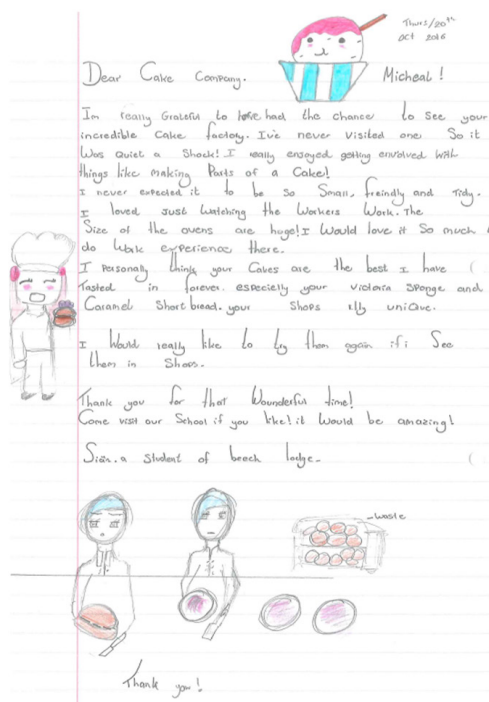 Thurs/20th
Oct 2016
Dear Cake Company.
Micheal!
Im really Grateful to have had the chance to see your
incredible Cake factory. I've never visited one So it
Was Quiet a Shock! I really enjoyed getting envolved with
things like making Parts of a Cake!
I never expected it to be So Small, freindly and Tidy.
I loved Just Watching the Workers Work. The
Size of the ovens are huge! I Would love it So much
do Work experience there.
I Personally think your Cakes are the best I have
Tasted in forever. especially your Victoria Sponge and
Caramel Shortbread. your Shops unique.
I Would really like to try them again if i See
them in Shops.
Thank you for that Wounderful time!
Come visit our School if you like! it Would be amazing!
Siân. a Student of beech lodge.
Waste
Thank you!